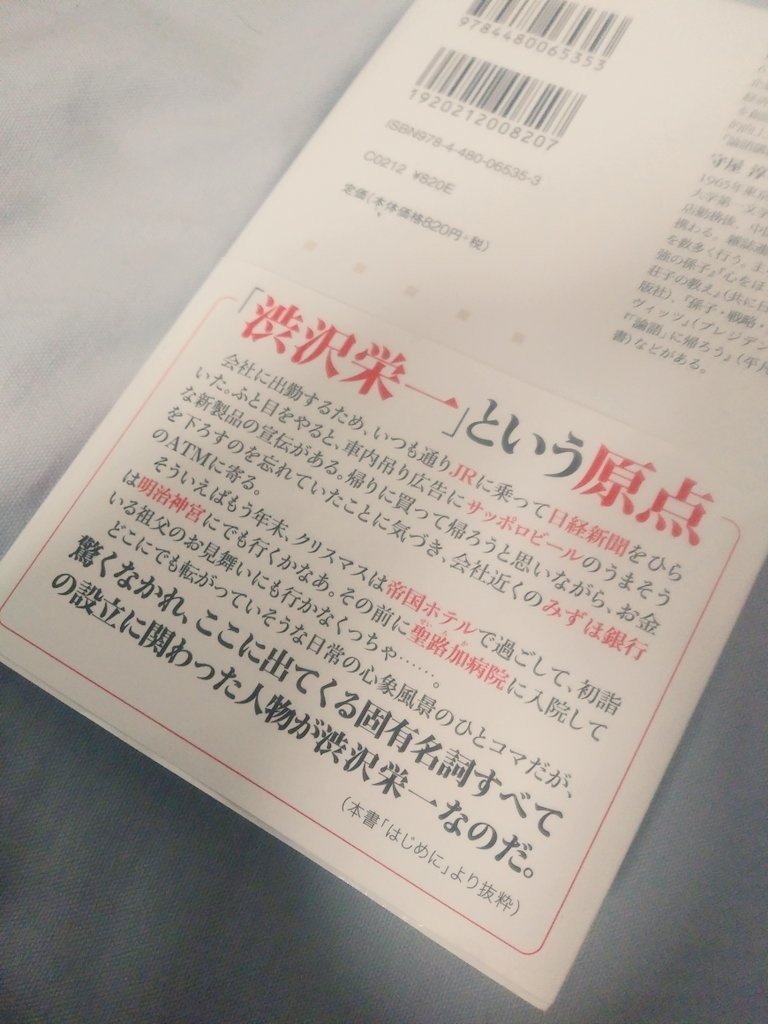 9784480065353
1920212008207
ISBN978-4-480-06535-3
C0212 ¥820E
定価(本体価格820円+税)
守屋 淳
1965年東京
大学第一文学
店勤務後、中国
携わる。雑誌連
を数多く行う。ま
強の孫子』『心をほ
荘子の教え』(共に日
版社)、『孫子・戦略・
ヴィッツ』(プレジデン
『「論語」に帰ろう』(平凡
書)などがある。
「渋沢栄一」という原点
会社に出勤するため、いつも通りJRに乗って日経新聞をひら
いた。ふと目をやると、車内吊り広告にサッポロビールのうまそう
な新製品の宣伝がある。帰りに買って帰ろうと思いながら、お金
を下ろすのを忘れていたことに気づき、会社近くのみずほ銀行
のATMに寄る。
そういえばもう年末、クリスマスは帝国ホテルで過ごして、初詣
は明治神宮にでも行くかなあ。その前に聖路加病院に入院して
いる祖父のお見舞いにも行かなくっちゃ……。
どこにでも転がっていそうな日常の心象風景のひとコマだが、
驚くなかれ、ここに出てくる固有名詞すべて
の設立に関わった人物が渋沢栄一なのだ。
(本書「はじめに」より抜粋)